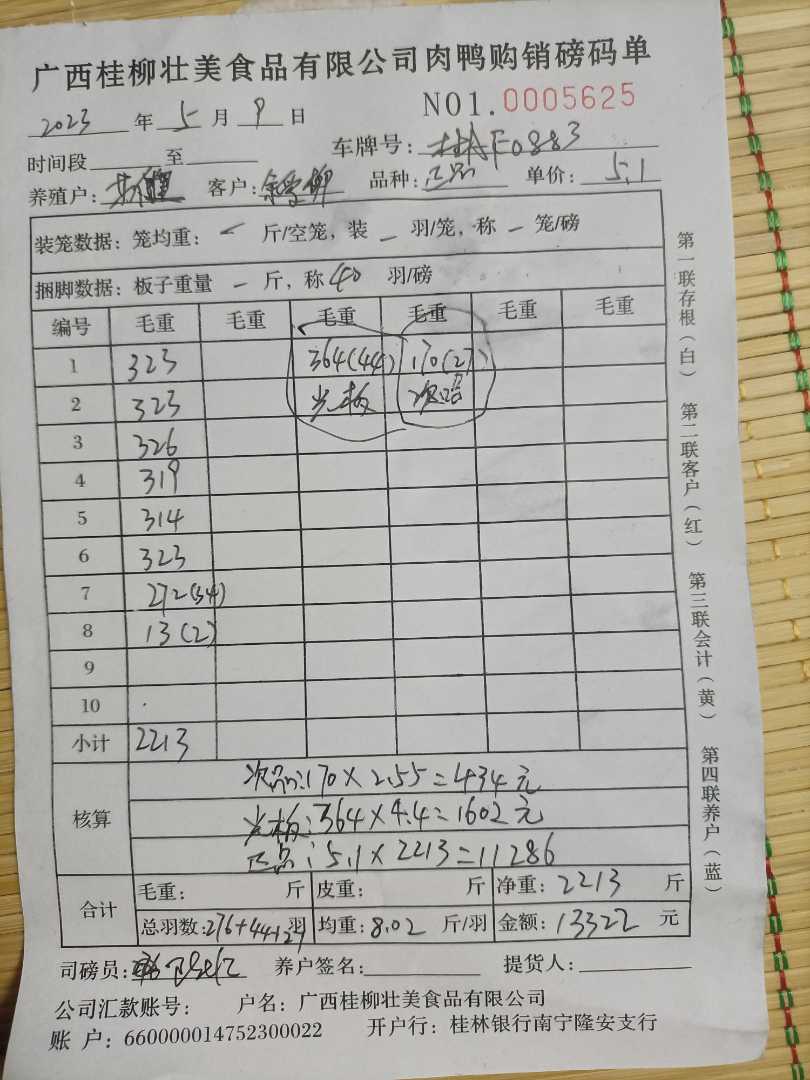 广西桂柳壮美食品有限公司肉鸭购销磅码单
2023 年 5 月 9 日 NO1.0005625
时间段 至 车牌号: F0883
养殖户: 客户: 品种:正品 单价: 5.1
装笼数据: 笼均重: - 斤/空笼, 装 - 羽/笼, 称 - 笼/磅
捆脚数据: 板子重量 - 斤, 称 40 羽/磅
编号 毛重 毛重 毛重 毛重 毛重 毛重
1 323 364(44) 170(27)
2 323 光板 次品
3 326
4 319
5 314
6 323
7 272(34)
8 13(2)
9
10
小计 2213
核算 次品:170×2.55=434元
光板:364×4.4=1602元
正品:5.1×2213=11286
合计 毛重: 斤 皮重: 斤 净重: 2213 斤
总羽数:276+44+27羽 均重: 8.02 斤/羽 金额: 13322 元
司磅员: 养户签名: 提货人:
公司汇款账号: 户名: 广西桂柳壮美食品有限公司
账 户: 660000014752300022 开户行: 桂林银行南宁隆安支行
第一联存根(白) 第二联客户(红) 第三联会计(黄) 第四联养户(蓝)